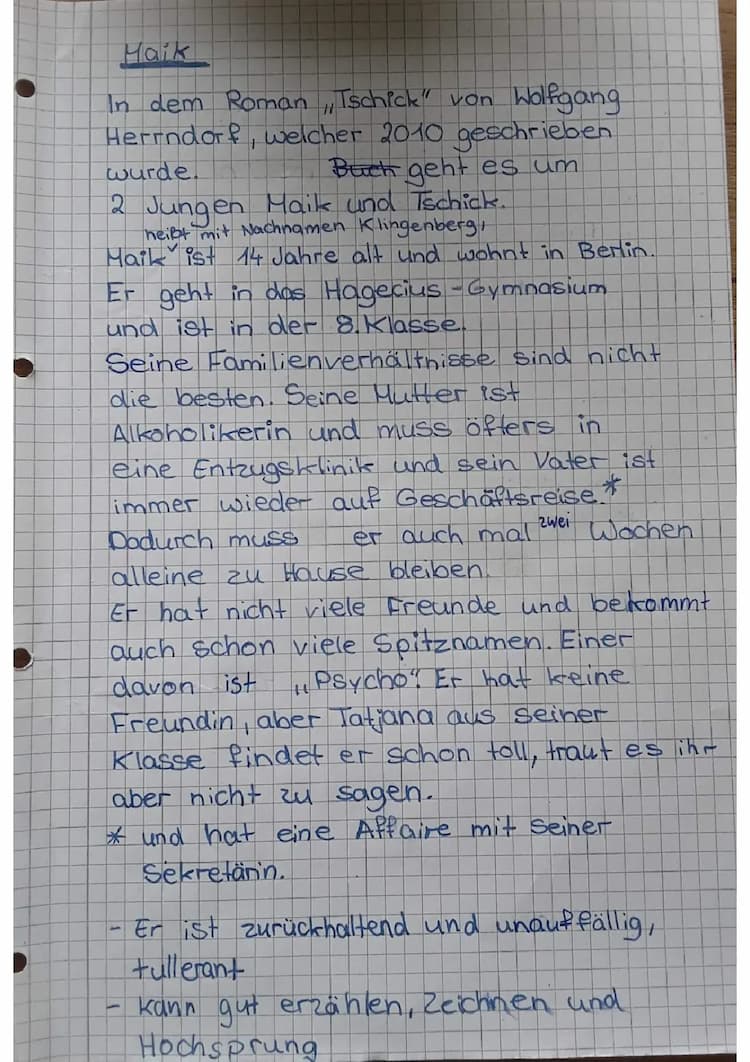 Maik
In dem Roman „Tschick" von Wolfgang
Herrndorf, welcher 2010 geschrieben
wurde. Buch geht es um
2 Jungen Maik und Tschick.
heißt mit Nachnamen Klingenberg,
Maik ist 14 Jahre alt und wohnt in Berlin.
Er geht in das Hagecius-Gymnasium
und ist in der 8. Klasse.
Seine Familienverhältnisse sind nicht
die besten. Seine Mutter ist
Alkoholikerin und muss öfters in
eine Entzugsklinik und sein Vater ist
immer wieder auf Geschäftsreise.*
Dadurch muss er auch mal zwei Wochen
alleine zu Hause bleiben.
Er hat nicht viele Freunde und bekommt
auch schon viele Spitznamen. Einer
davon ist „Psycho". Er hat keine
Freundin, aber Tatjana aus seiner
Klasse findet er schon toll, traut es ihr
aber nicht zu sagen.
* und hat eine Affaire mit seiner
Sekretärin.
- Er ist zurückhaltend und unauffällig,
tullerant
- kann gut erzählen, Zeichnen und
Hochsprung